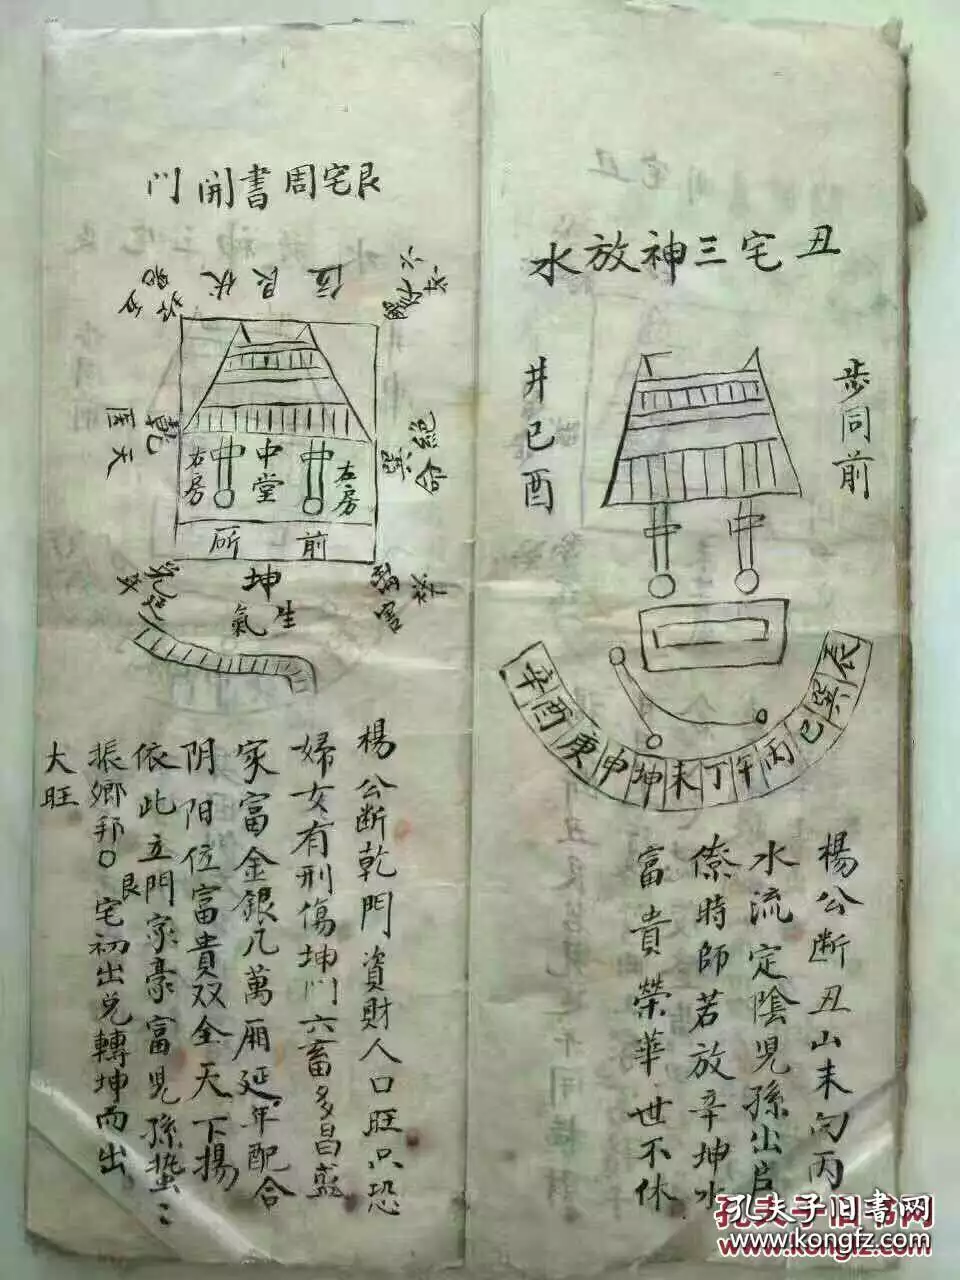 丑宅三神放水
步同前
井已酉
中
中
辰巽巳丙午丁未坤申庚酉辛
楊公断丑山未向丙
水流定陰児孫出官
僚時師若放辛坤水
富貴榮華世不休
艮宅周書開門
六煞
伏艮位
絕命
巽
天医
乾
左房
中
中堂
中
右房
前所
坤
生氣
禍害
延年
楊公断乾門資財人口旺只恐
婦女有刑傷坤门六畜多昌盛
家富金銀几萬厢延年配合
阴阳位富貴双全天下揚
依此立門家豪富児孫蛰〻
振鄉邦〇艮宅初出兑轉坤而出
大旺
孔夫子旧书网
www.kongfz.com